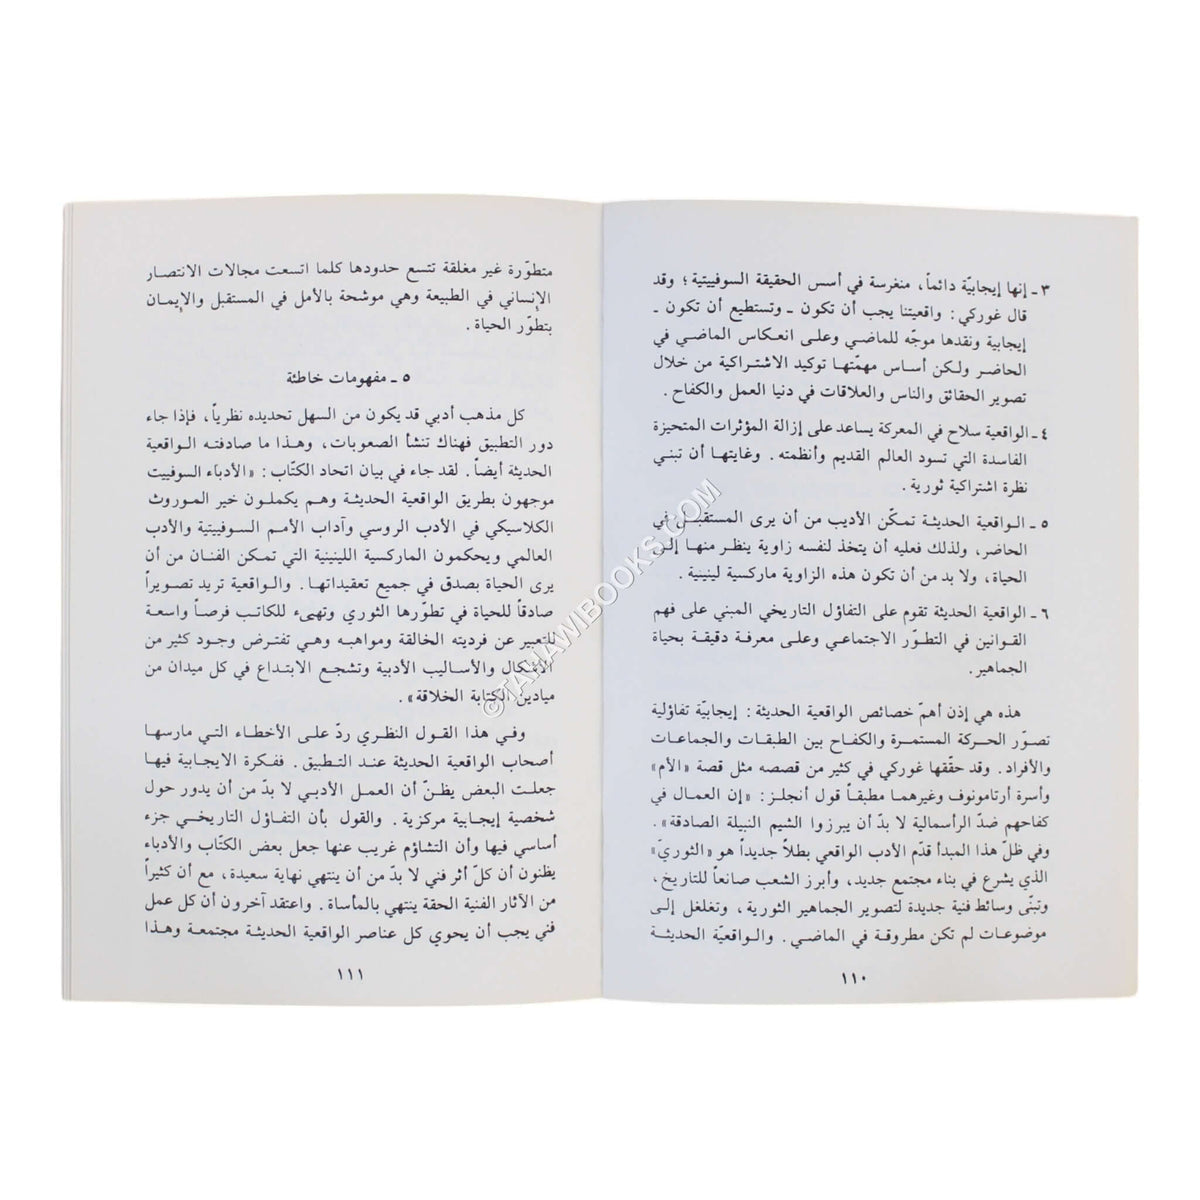 ٣ ـ إنها إيجابيّة دائماً، منغرسة في أسس الحقيقة السوفييتية ؛ وقد
قال غوركي : واقعيتنا يجب أن تكون ـ وتستطيع أن تكون ـ
إيجابية ونقدها موجّه للماضي وعلى انعكاس الماضي في
الحاضر ولكن أساس مهمّتها توكيد الاشتراكية من خلال
تصوير الحقائق والناس والعلاقات في دنيا العمل والكفاح .
٤ ـ الواقعية سلاح في المعركة يساعد على إزالة المؤثرات المتحيزة
الفاسدة التي تسود العالم القديم وأنظمته . وغايتها أن تبني
نظرة اشتراكية ثورية .
٥ ـ الواقعية الحديثة تمكّن الأديب من أن يرى المستقبل في
الحاضر، ولذلك فعليه أن يتخذ لنفسه زاوية ينظر منها إلى
الحياة، ولا بد من أن تكون هذه الزاوية ماركسية لينينية .
٦ ـ الواقعية الحديثة تقوم على التفاؤل التاريخي المبني على فهم
القوانين في التطوّر الاجتماعي وعلى معرفة دقيقة بحياة
الجماهير.
هذه هي إذن أهمّ خصائص الواقعية الحديثة : إيجابيّة تفاؤلية
تصوّر الحركة المستمرة والكفاح بين الطبقات والجماعات
والأفراد. وقد حقّقها غوركي في كثير من قصصه مثل قصة «الأم»
وأسرة أرتامونوف وغيرهما مطبقاً قول أنجلز: «إن العمال في
كفاحهم ضدّ الرأسمالية لا بدّ أن يبرزوا الشيم النبيلة الصادقة» .
وفي ظلّ هذا المبدأ قدّم الأدب الواقعي بطلاً جديداً هو «الثوريّ»
الذي يشرع في بناء مجتمع جديد، وأبرز الشعب صانعاً للتاريخ ،
وتبنّى وسائط فنية جديدة لتصوير الجماهير الثورية ، وتغلغل إلى
موضوعات لم تكن مطروقة في الماضي . والواقعيّة الحديثة
١١٠
متطوّرة غير مغلقة تتسع حدودها كلما اتسعت مجالات الانتصار
الإنساني في الطبيعة وهي موشحة بالأمل في المستقبل والإيمان
بتطوّر الحياة .
٥ ـ مفهومات خاطئة
كل مذهب أدبي قد يكون من السهل تحديده نظرياً، فإذا جاء
دور التطبيق فهناك تنشأ الصعوبات، وهذا ما صادفته الواقعية
الحديثة أيضاً . لقد جاء في بيان اتحاد الكتّاب : «الأدباء السوفييت
موجهون بطريق الواقعية الحديثة وهم يكملون خير الموروث
الكلاسيكي في الأدب الروسي وآداب الأمم السوفييتية والأدب
العالمي ويحكمون الماركسية اللينينية التي تمكن الفنان من أن
يرى الحياة بصدق في جميع تعقيداتها . والواقعية تريد تصويراً
صادقاً للحياة في تطوّرها الثوري وتهيىء للكاتب فرصاً واسعة
للتعبير عن فرديته الخالقة ومواهبه وهي تفترض وجود كثير من
الأشكال والأساليب الأدبية وتشجع الابتداع في كل ميدان من
ميادين الكتابة الخلاقة» .
وفي هذا القول النظري ردّ على الأخطاء التي مارسها
أصحاب الواقعية الحديثة عند التطبيق . ففكرة الايجابية فيها
جعلت البعض يظنّ أن العمل الأدبي لا بدّ من أن يدور حول
شخصية إيجابية مركزية . والقول بأن التفاؤل التاريخي جزء
أساسي فيها وأن التشاؤم غريب عنها جعل بعض الكتّاب والأدباء
يظنون أن كلّ أثر فني لا بدّ من أن ينتهي نهاية سعيدة، مع أن كثيراً
من الآثار الفنية الحقة ينتهي بالمأساة . واعتقد آخرون أن كل عمل
فني يجب أن يحوي كل عناصر الواقعية الحديثة مجتمعة وهذا
١١١
© TAHAWIBOOKS.COM